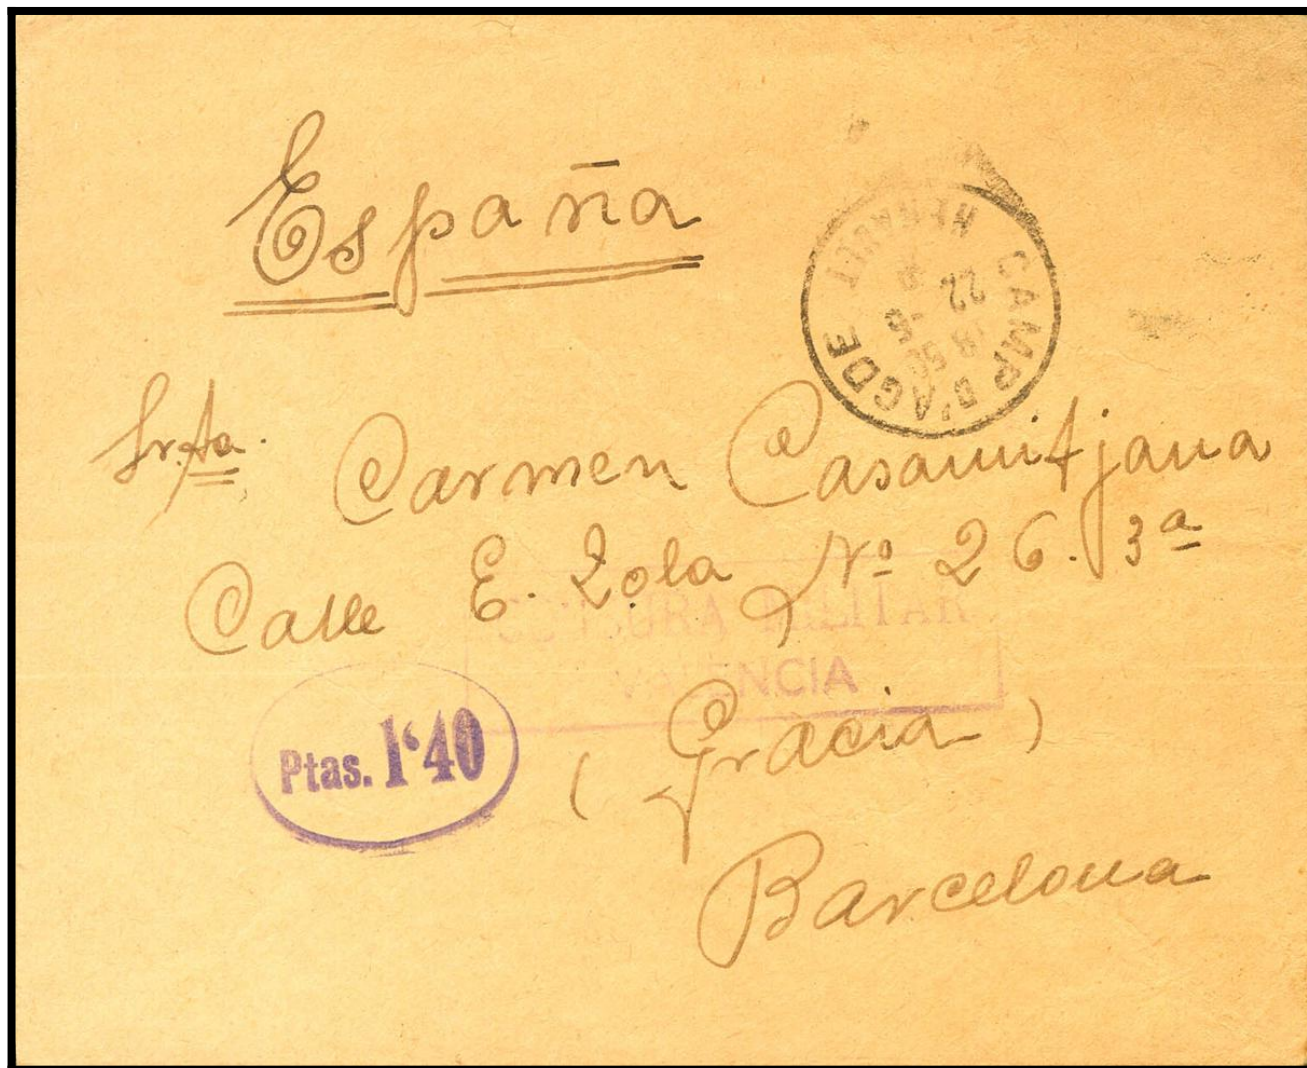 España
CAMP D'AGDE
HERAULT
18 50
22 -6
Srta. Carmen Casamitjana
Calle E. Zola Nº 26. 3ª
CENSURA MILITAR
VALENCIA
Ptas. 1'40
(Gracia)
Barcelona